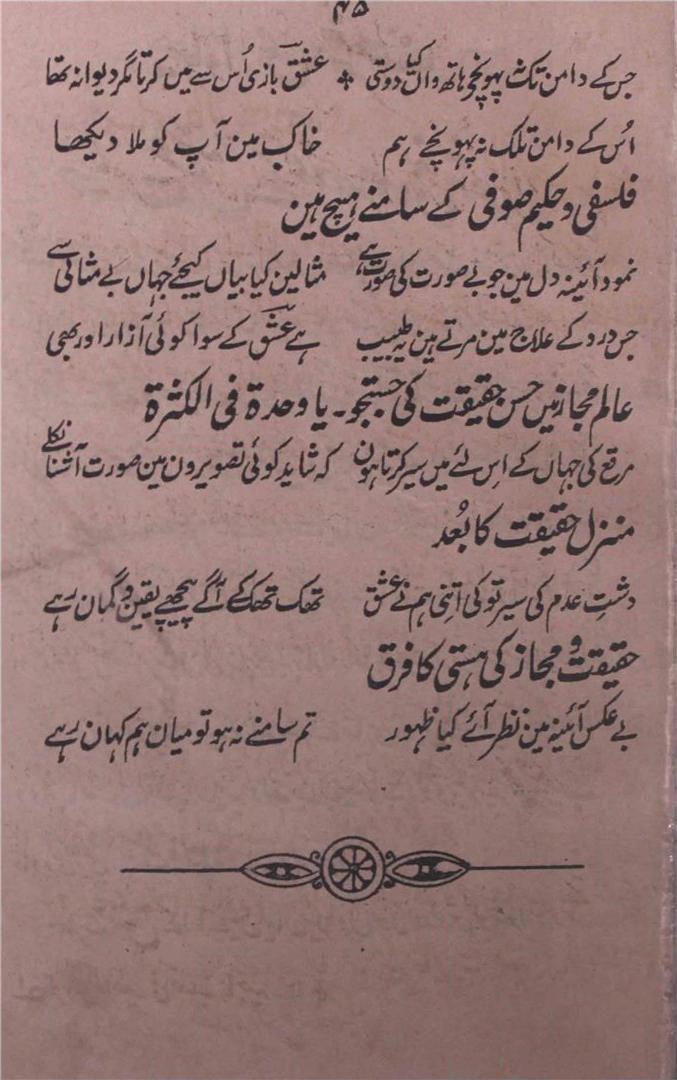 ۴۵
جس کے دامن تک نہ پہونچے ہاتھ واں کیا دوستی ٭ عشق بازی اُس سے میں کرتا مگر دیوانہ تھا
اُس کے دامن تلک نہ پہونچے ہم خاک مین آپ کو ملا دیکھا
فلسفی و حکیم صوفی کے سامنے ہیچ ہین
نمود آئینہ دل مین جو بے صورت کی صورت ہے مثالین کیا بیاں کیجئے جہاں بے مثالی سے
جس درد کے علاج مین مرتے ہین یہ طبیب ہے عشق کے سوا کوئی آزار اور بھی
عالم مجاز میں حسن حقیقت کی جستجو۔ یا وحدۃ فی الکثرۃ
مرقع کی جہاں کے اس لئے میں سیر کرتا ہون کہ شاید کوئی تصویرون مین صورت آشنا نکلے
منزل حقیقت کا بُعد
دشتِ عدم کی سیر تو کی اتنی ہم نے عشق تھک تھک کے آگے پیچھے یقین و گمان رہے
حقیقت و مجاز کی ہستی کا فرق
بے عکس آئینہ مین نظر آئے کیا ظہور تم سامنے نہ ہو تو میان ہم کہان رہے